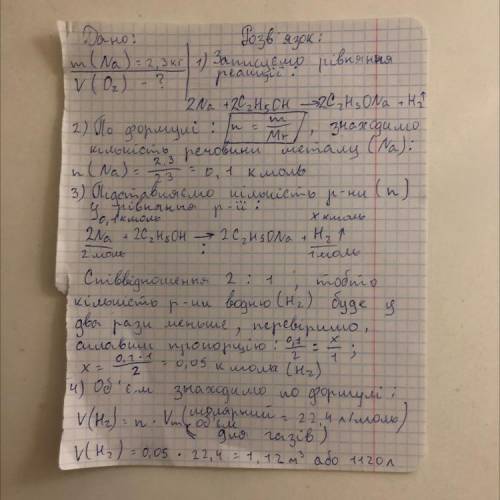 Дано: Розв'язок:
m(Na) = 2,3кг 1) Записуємо рівняння
V(O₂) - ? реакції:
2Na + 2C₂H₅OH → 2C₂H₅ONa + H₂↑
2) По формулі: n = m/Mr, знаходимо
кількість речовини металу (Na):
n(Na) = 2,3/23 = 0,1 кмоль
3) Підставляємо кількість р-ни (n)
у рівняння р-ії:
0,1кмоль х кмоль
2Na + 2C₂H₅OH → 2C₂H₅ONa + H₂↑
2моль 1моль
Співвідношення 2 : 1, тобто
кількість р-ни водню (H₂) буде у
два рази меньше, перевіримо,
склавши пропорцію: 0,1/2 = x/1;
x = 0,1·1/2 = 0,05 кмоль (H₂)
4) Об'єм знаходимо по формулі:
V(H₂) = n · Vm (молярний об'єм = 22,4 л/моль)
для газів)
V(H₂) = 0,05 · 22,4 = 1,12 м³ або 1120л